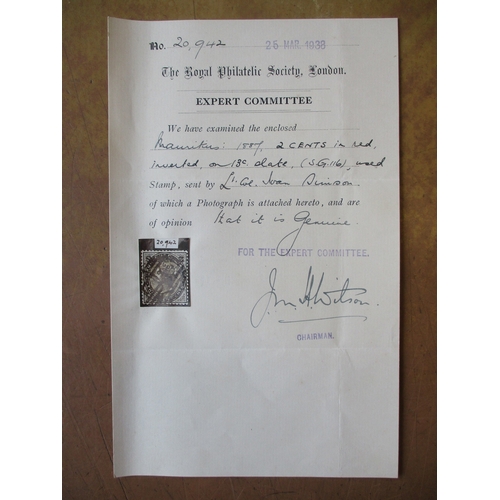 No. 20,942 25 MAR. 1938
The Royal Philatelic Society, London.
EXPERT COMMITTEE
We have examined the enclosed
Mauritius: 1887, 2 CENTS in red,
inverted, on 13c. slate, (S.G.116), used
Stamp, sent by Lt. Col. Ivan Simson.
of which a Photograph is attached hereto, and are
of opinion that it is Genuine.
20,942
FOR THE EXPERT COMMITTEE.
Jn. H. Wilson.
CHAIRMAN.